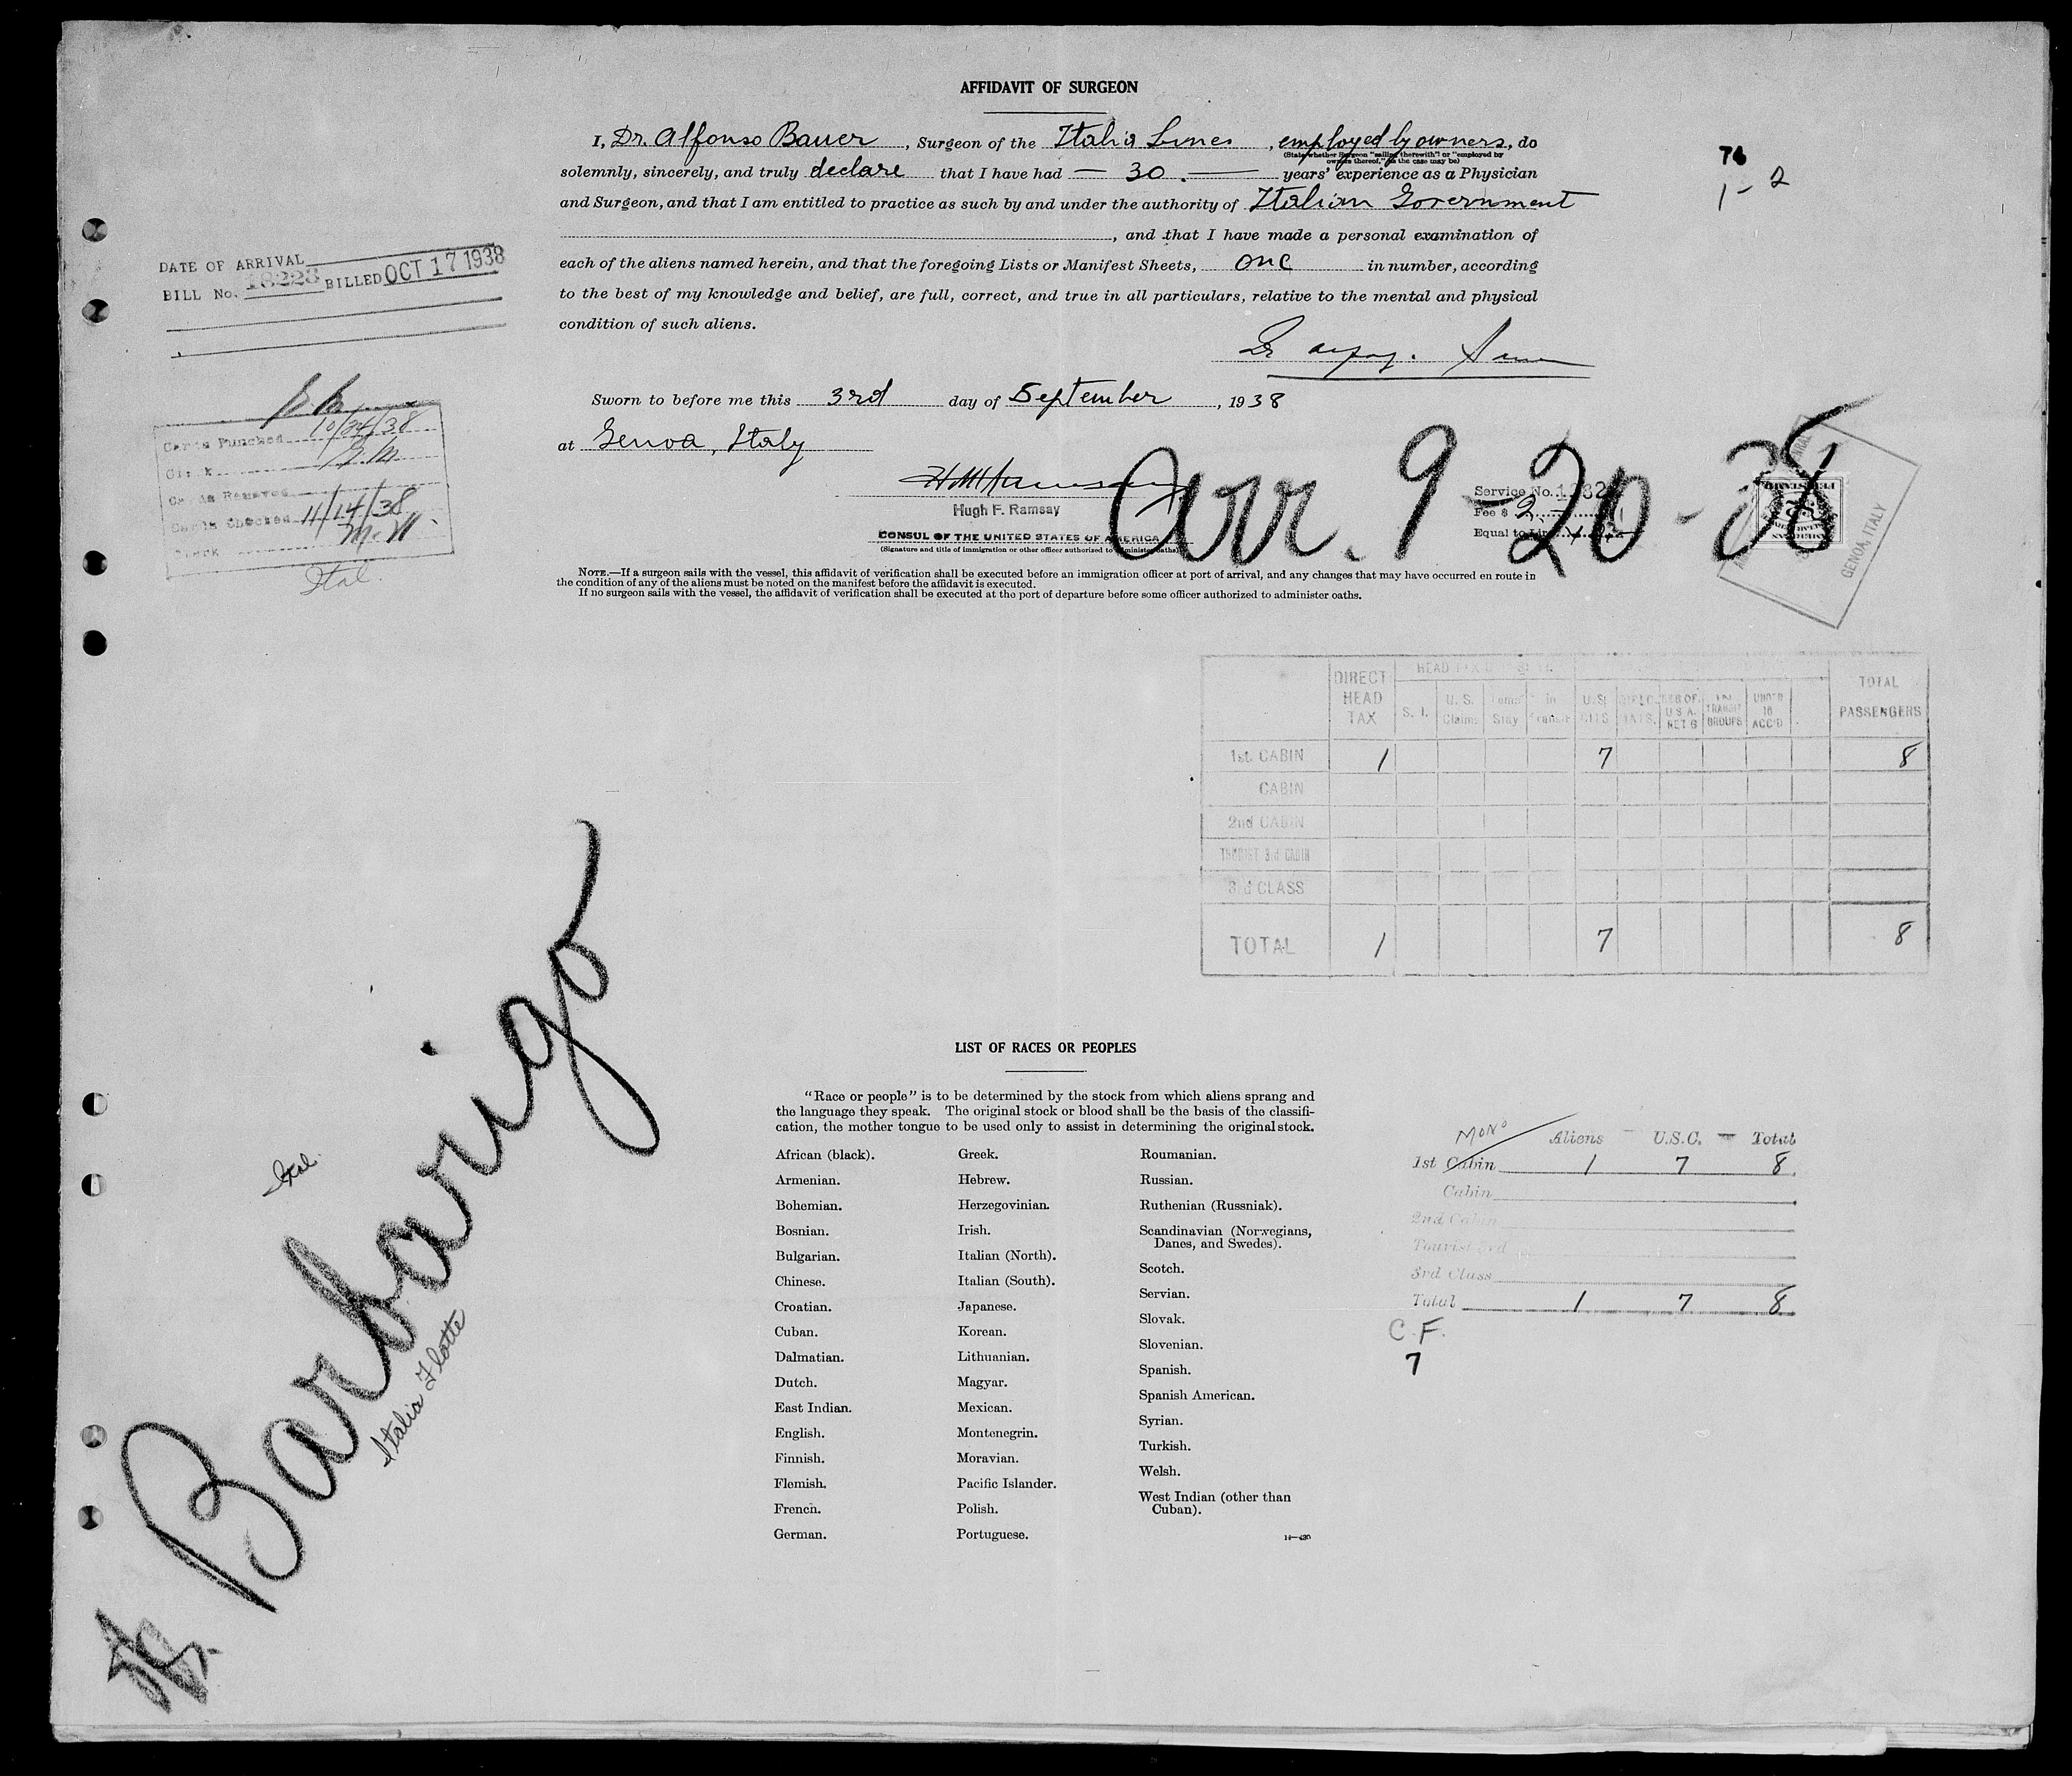 AFFIDAVIT OF SURGEON
I, Dr. Alfonso Bauer, Surgeon of the Italia Lines, employed by owners, do
(State whether Surgeon "sailing therewith" or "employed by
owners thereof," as the case may be)
solemnly, sincerely, and truly declare that I have had — 30. — years' experience as a Physician
and Surgeon, and that I am entitled to practice as such by and under the authority of Italian Government
, and that I have made a personal examination of
each of the aliens named herein, and that the foregoing Lists or Manifest Sheets, one in number, according
to the best of my knowledge and belief, are full, correct, and true in all particulars, relative to the mental and physical
condition of such aliens.
Dr
Sworn to before me this 3rd day of September, 1938
at Genoa, Italy
Hugh F. Ramsay
CONSUL OF THE UNITED STATES OF AMERICA
(Signature and title of immigration or other officer authorized to administer oaths)
Arr. 9-20-38
Service No.
Fee $ 2
Equal to
GENOA, ITALY
1 - 2
DATE OF ARRIVAL
BILL No. 18223 BILLED OCT 17 1938
Cards Punched 10/24/38
Clerk
Cards Removed
Cards Checked 11/14/38
Clerk M.W.
Ital.
NOTE.—If a surgeon sails with the vessel, this affidavit of verification shall be executed before an immigration officer at port of arrival, and any changes that may have occurred en route in
the condition of any of the aliens must be noted on the manifest before the affidavit is executed.
If no surgeon sails with the vessel, the affidavit of verification shall be executed at the port of departure before some officer authorized to administer oaths.
DIRECT HEAD TAX S. I. U. S. Claims Temp Stay In Transit U.S. CITS DIPLO MATS. RES OF U S A. RET G IN TRANSIT GROUPS UNDER 16 ACC'D TOTAL PASSENGERS
1st. CABIN 1 7 8
CABIN
2nd CABIN
TOURIST 3rd CABIN
3rd CLASS
TOTAL 1 7 8
LIST OF RACES OR PEOPLES
"Race or people" is to be determined by the stock from which aliens sprang and
the language they speak. The original stock or blood shall be the basis of the classifi-
cation, the mother tongue to be used only to assist in determining the original stock.
African (black).
Armenian.
Bohemian.
Bosnian.
Bulgarian.
Chinese.
Croatian.
Cuban.
Dalmatian.
Dutch.
East Indian.
English.
Finnish.
Flemish.
French.
German.
Greek.
Hebrew.
Herzegovinian.
Irish.
Italian (North).
Italian (South).
Japanese.
Korean.
Lithuanian.
Magyar.
Mexican.
Montenegrin.
Moravian.
Pacific Islander.
Polish.
Portuguese.
Roumanian.
Russian.
Ruthenian (Russniak).
Scandinavian (Norwegians,
Danes, and Swedes).
Scotch.
Servian.
Slovak.
Slovenian.
Spanish.
Spanish American.
Syrian.
Turkish.
Welsh.
West Indian (other than
Cuban).
14—430
Mono Aliens — U.S.C. — Total
1st Cabin 1 7 8
Cabin
2nd Cabin
Tourist 3rd
3rd Class
Total 1 7 8
C.F.
7
Ital.
Barbarigo
Italia Flotte